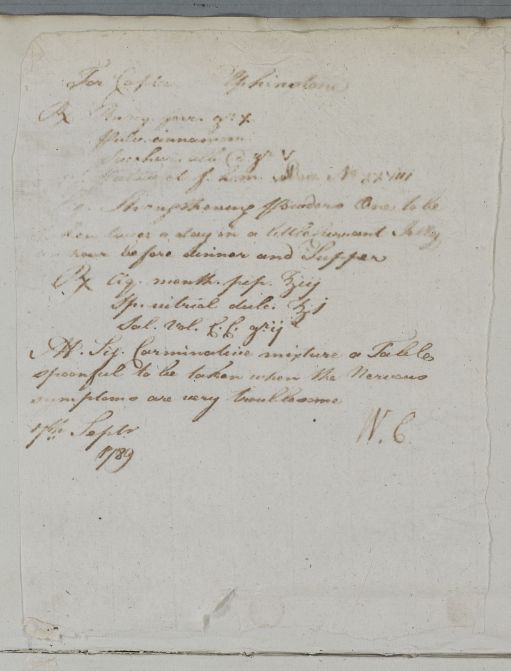 For Captn Elphinstone
℞ gr x
Pulv. cinnamom
Sacchar. alb. a gr V
f. No XXIIII
Strengthening Powders One to be
taken twice a day in a little Currant Jelly
an hour before dinner and Supper
℞ Aq. menth. pip. ℥iij
Sp. vitriol. dulc. ʒj
Sal. Vol. C. C. grij
M. Sig. Carminative mixture a Table
spoonful to be taken when the Nervous
symptoms are very troublesome
17th Septr W. C.
1789